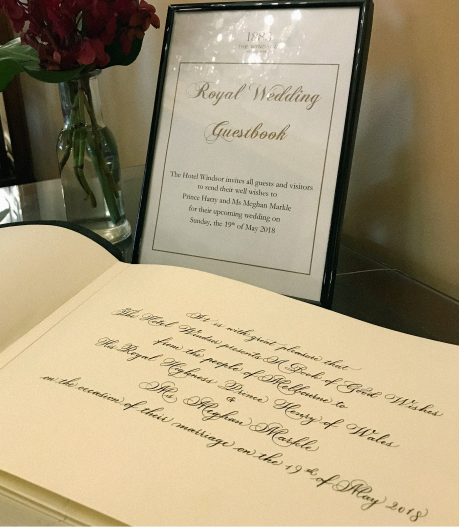 Royal Wedding
Guestbook
The Hotel Windsor invites all guests and visitors
to send their well wishes to
Prince Harry and Ms Meghan Markle
for their upcoming wedding on
Sunday, the 19th of May 2018
It is with great pleasure that
The Hotel Windsor presents A Book of Good Wishes
from the people of Melbourne to
His Royal Highness Prince Henry of Wales
&
Ms Meghan Markle
on the occasion of their marriage on the 19th of May 2018